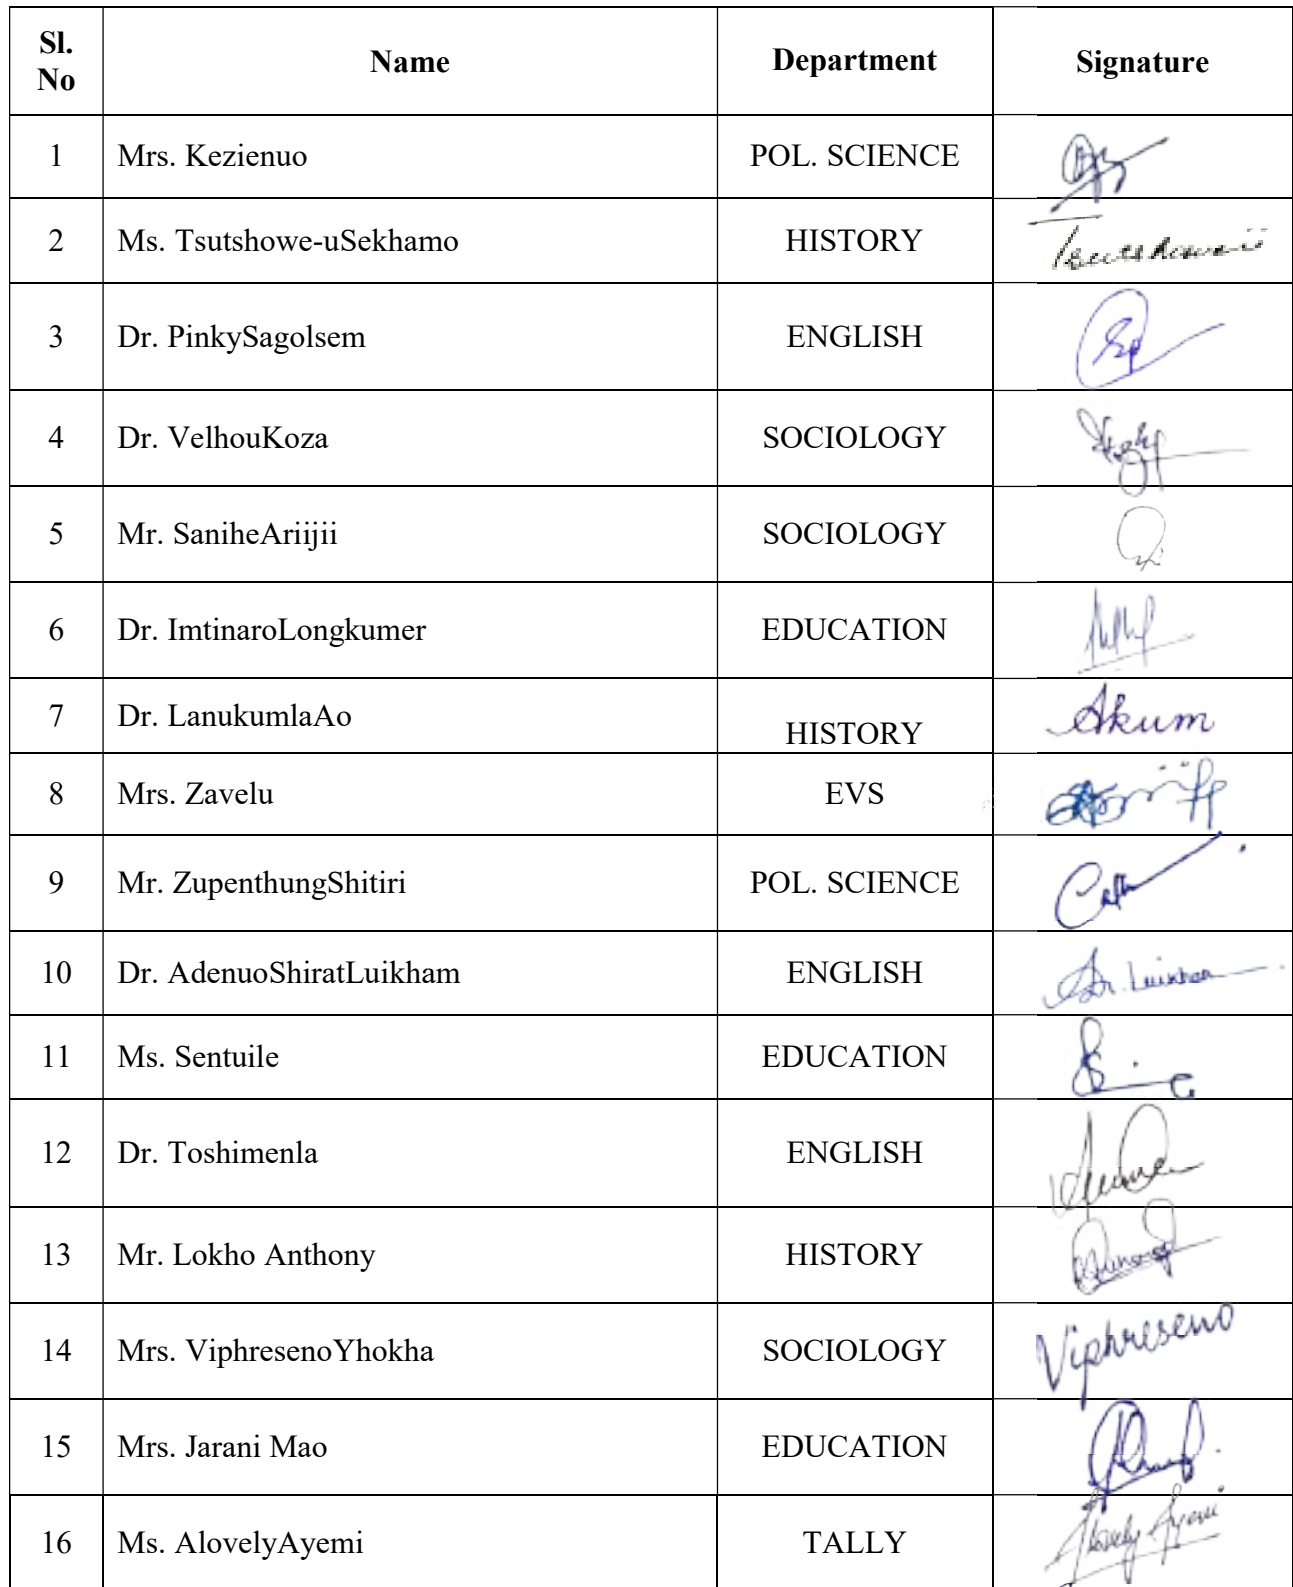 Sl. No Name Department Signature
1 Mrs. Kezienuo POL. SCIENCE
2 Ms. Tsutshowe-uSekhamo HISTORY
3 Dr. PinkySagolsem ENGLISH
4 Dr. VelhouKoza SOCIOLOGY
5 Mr. SaniheAriijii SOCIOLOGY
6 Dr. ImtinaroLongkumer EDUCATION
7 Dr. LanukumlaAo HISTORY Akum
8 Mrs. Zavelu EVS
9 Mr. ZupenthungShitiri POL. SCIENCE
10 Dr. AdenuoShiratLuikham ENGLISH
11 Ms. Sentuile EDUCATION
12 Dr. Toshimenla ENGLISH
13 Mr. Lokho Anthony HISTORY
14 Mrs. ViphresenoYhokha SOCIOLOGY Viphreseno
15 Mrs. Jarani Mao EDUCATION
16 Ms. AlovelyAyemi TALLY Alovely Ayemi